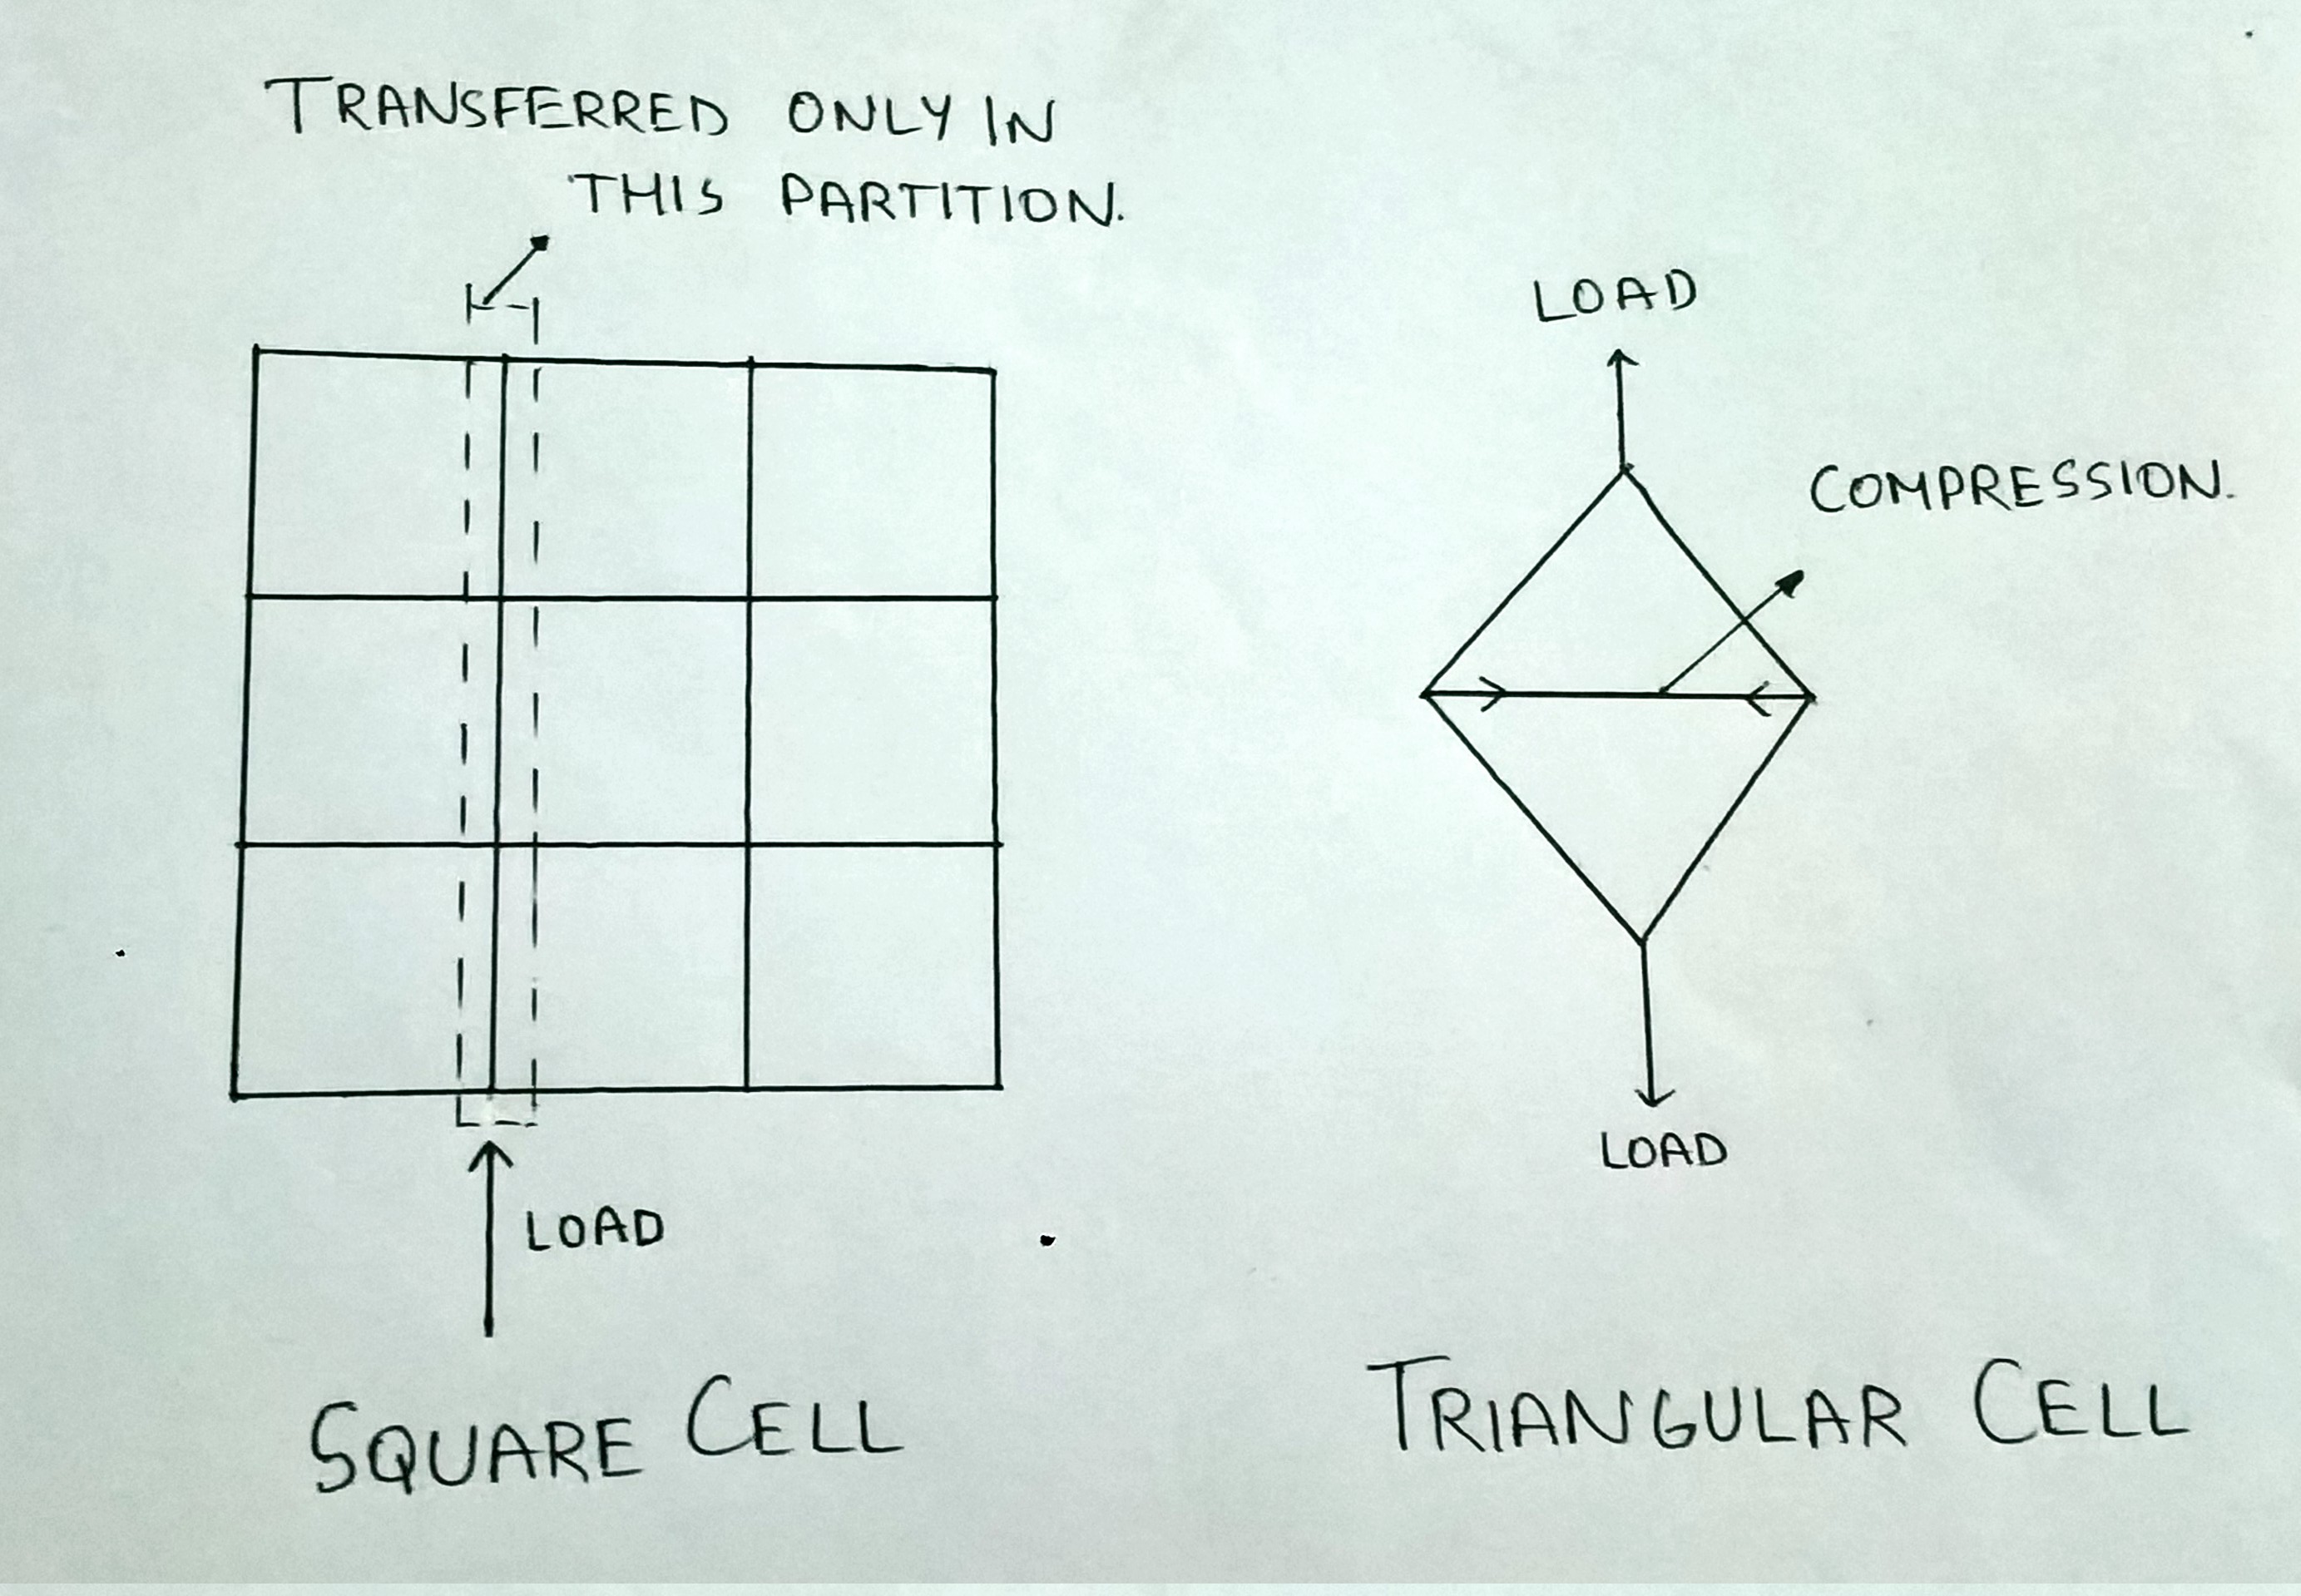 TRANSFERRED ONLY IN
THIS PARTITION.
LOAD
SQUARE CELL
LOAD
COMPRESSION.
LOAD
TRIANGULAR CELL